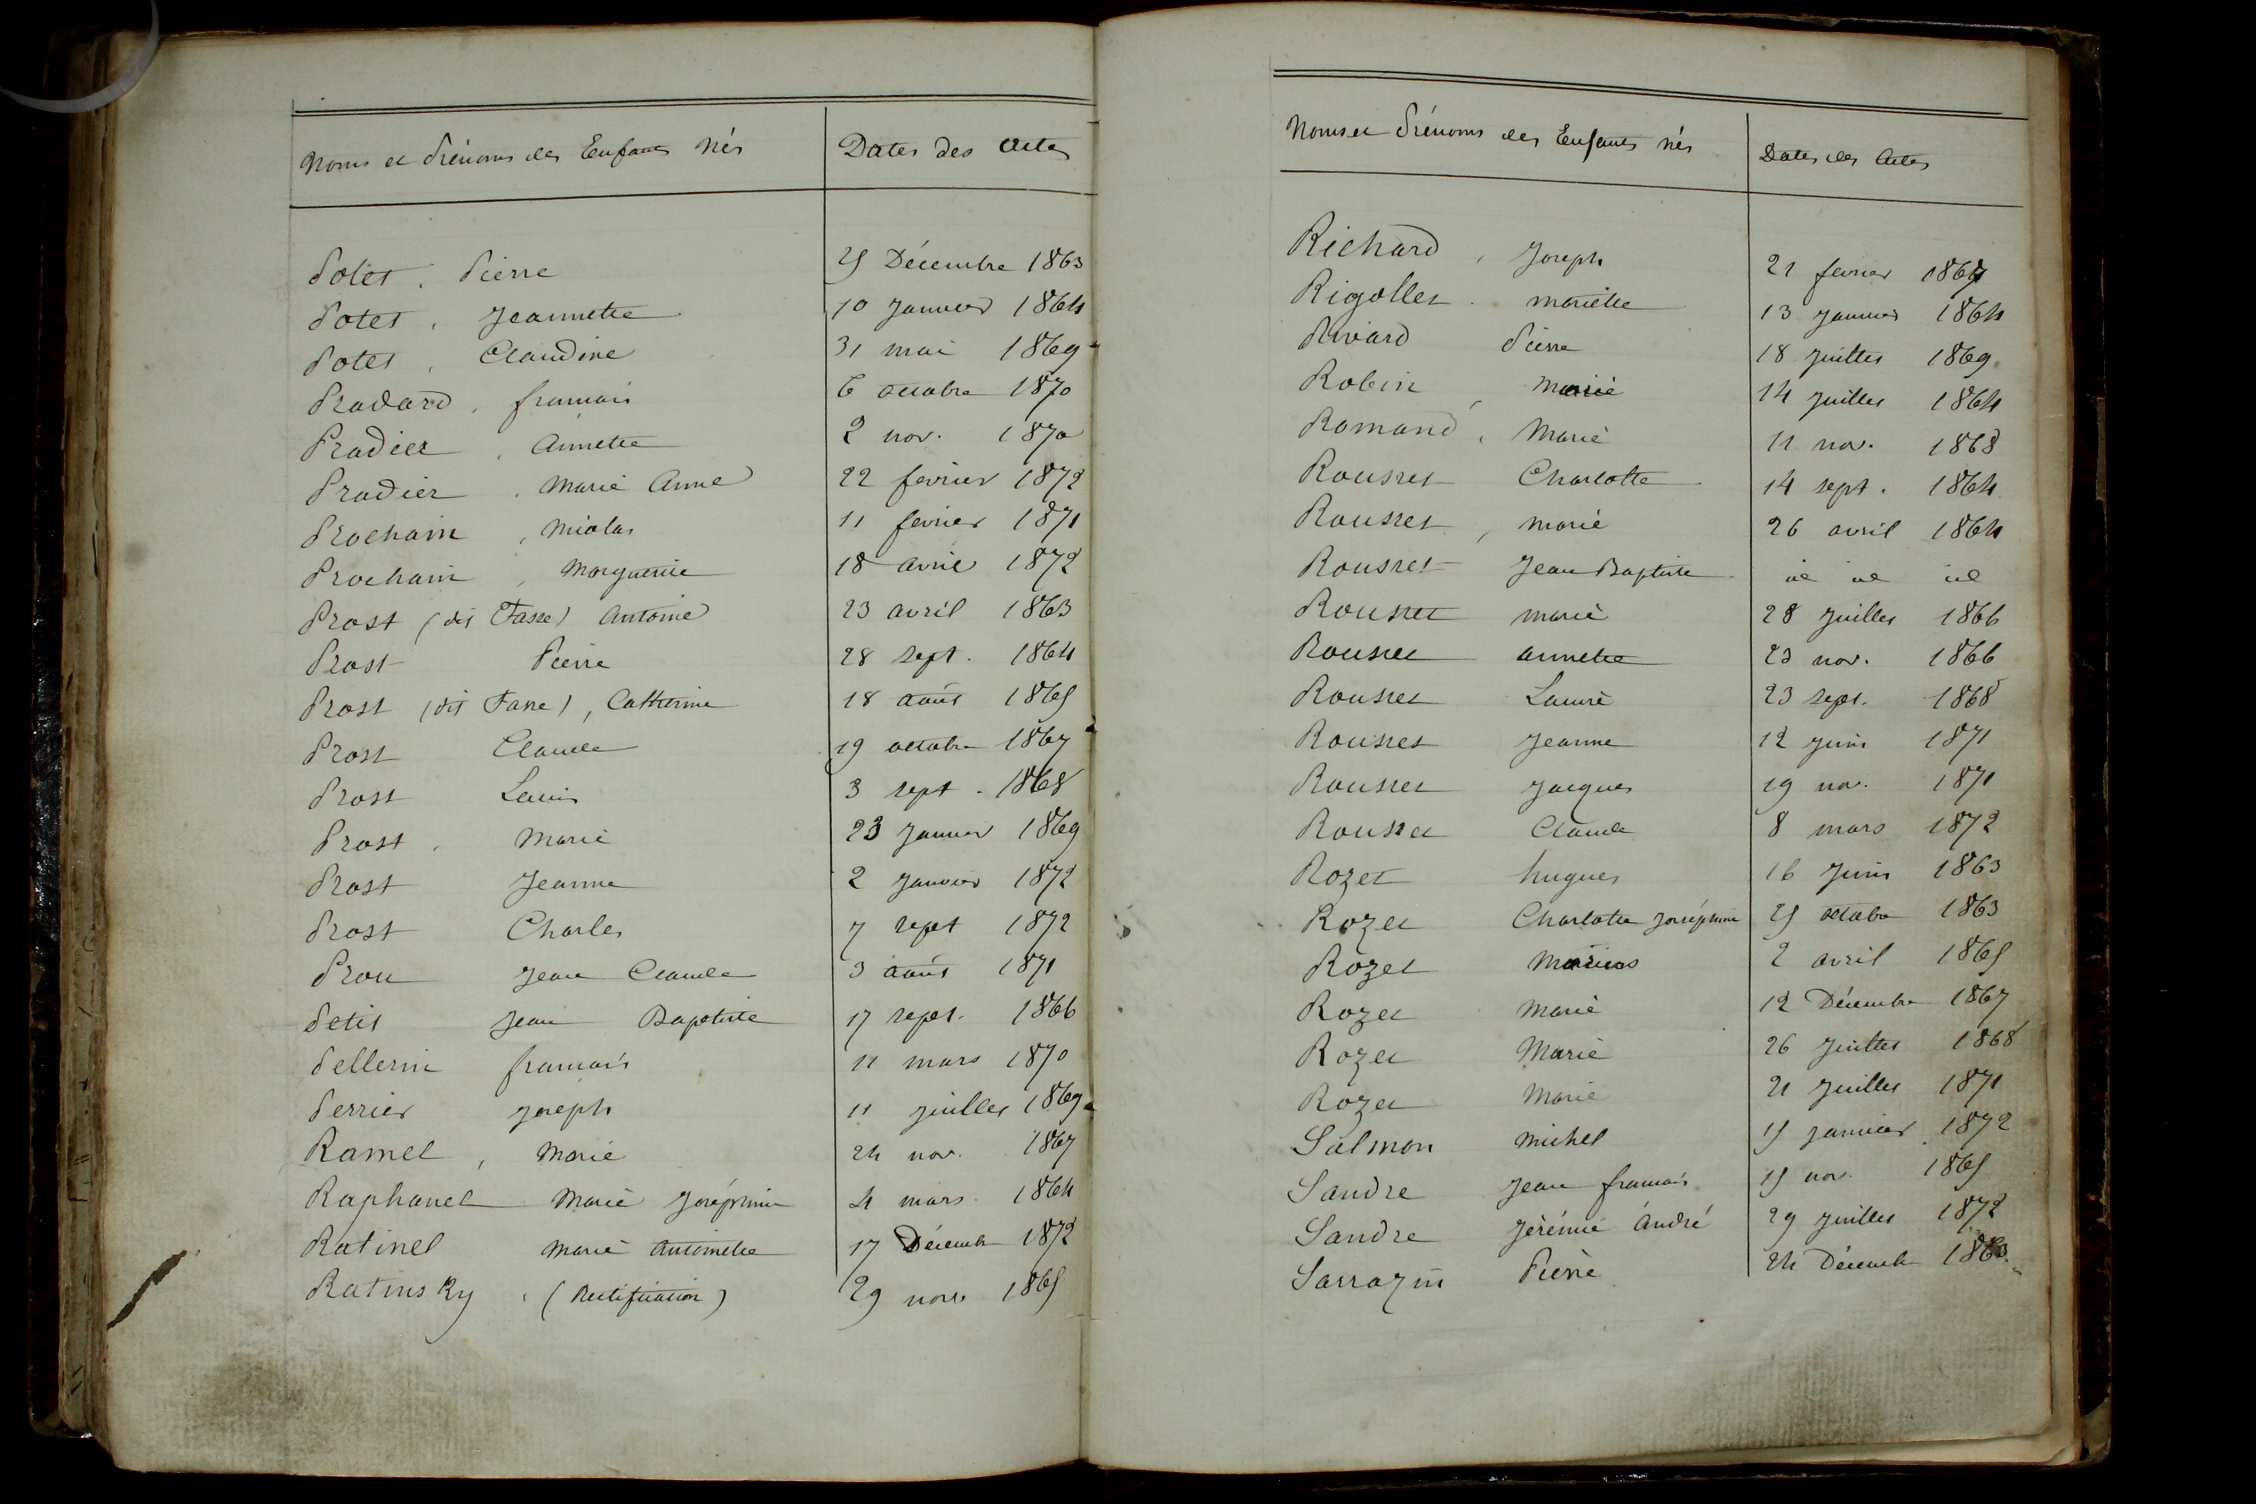 Noms et Prénoms des Enfants Nés Dates des Actes
Potet, Pierre 25 Décembre 1863
Potet, Jeannette 10 Janvier 1864
Potet, Claudine 31 mai 1869
Pradard, français 6 octobre 1870
Pradier, Annette 2 nov. 1870
Pradier, Marie Anne 22 février 1872
Prochain, Nicolas 11 février 1871
Prochain, Marguerite 18 avril 1872
Prost (dit Fasse) Antoine 23 avril 1863
Prost Pierre 28 sept. 1864
Prost (dit Fasse), Catherine 18 août 1865
Prost Claude 19 octobre 1867
Prost Louis 3 sept. 1868
Prost. Marie 23 Janvier 1869
Prost Jeanne 2 Janvier 1872
Prost Charles 7 sept 1872
Prou Jean Claude 3 août 1871
Petit Jean Baptiste 17 sept. 1866
Pellerin français 11 mars 1870
Perrier Joseph 11 juillet 1869
Ramel, Marie 24 nov. 1867
Raphanel Marie Joséphine 4 mars 1864
Ratinel Marie Antoinette 17 Décemb 1872
Ratinsky. (Rectification) 29 nov. 1865
Noms et Prénoms des Enfants Nés Dates des Actes
Richard, Joseph 21 février
Rigollet. Mariette 13 Janvier 1864
Rivard Pierre 18 juillet 1869
Robin, Marie 14 juillet 1864
Romand, Marie 11 nov. 1868
Rousset Charlotte 14 sept. 1864
Rousset, Marie 26 avril 1864
Rousset Jean Baptiste id id id
Rousset Marie 28 juillet 1866
Rousset Annette 23 nov. 1866
Rousset 23 sept. 1868
Rousset Jeanne 12 juin 1871
Rousset Jacques 19 nov. 1871
Rousset Claude 8 mars 1872
Rozet hugues 16 juin 1863
Rozet Charlotte Joséphine 25 octobre 1863
Rozet Marius 2 avril 1865
Rozet Marie 12 Décembre 1867
Rozet Marie 26 juillet 1868
Rozet Marie 21 juillet 1871
Salmon Michel 15 janvier 1872
Sandre Jean français 15 nov. 1865
Sandre Jérémie André 29 juillet 1872
Sarrazin Pierre 24 Décemb